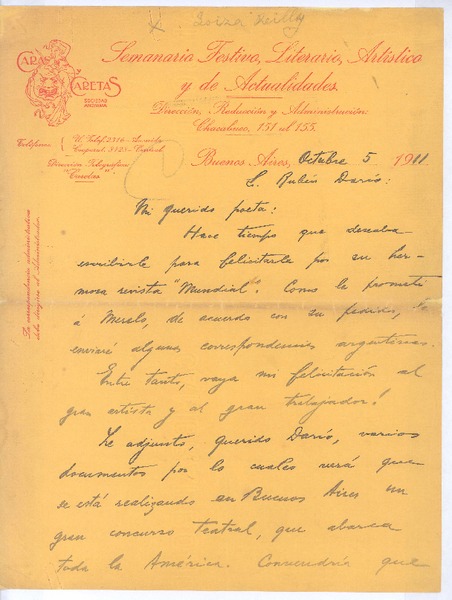 Soiza Reilly
CARAS
Y
CARETAS
SOCIEDAD
ANÓNIMA
Semanario Festivo, Literario, Artístico
y de Actualidades.
Dirección, Redacción y Administración:
Chacabuco, 151 al 155.
Teléfono
U. Telef. 2316 - Avenida
Cooperat. 3123 - Central
Dirección Telegráfica:
"Caretas"
La correspondencia administrativa
debe dirigirse al Administrador.
Buenos Aires, Octubre 5 1911
S. Rubén Darío:
Mi querido poeta:
Hace tiempo que deseaba
escribirle para felicitarle por su her-
mosa revista "Mundial". Como le prometí
á Merelo, de acuerdo con su pedido, le
enviaré algunas correspondencias argentinas.
Entre tanto, vaya mi felicitación al
gran artista y al gran trabajador!
Le adjunto, querido Darío, varios
documentos por lo cuales verá que
se está realizando en Buenos Aires un
gran concurso teatral, que abarca
toda la América. Convendría que